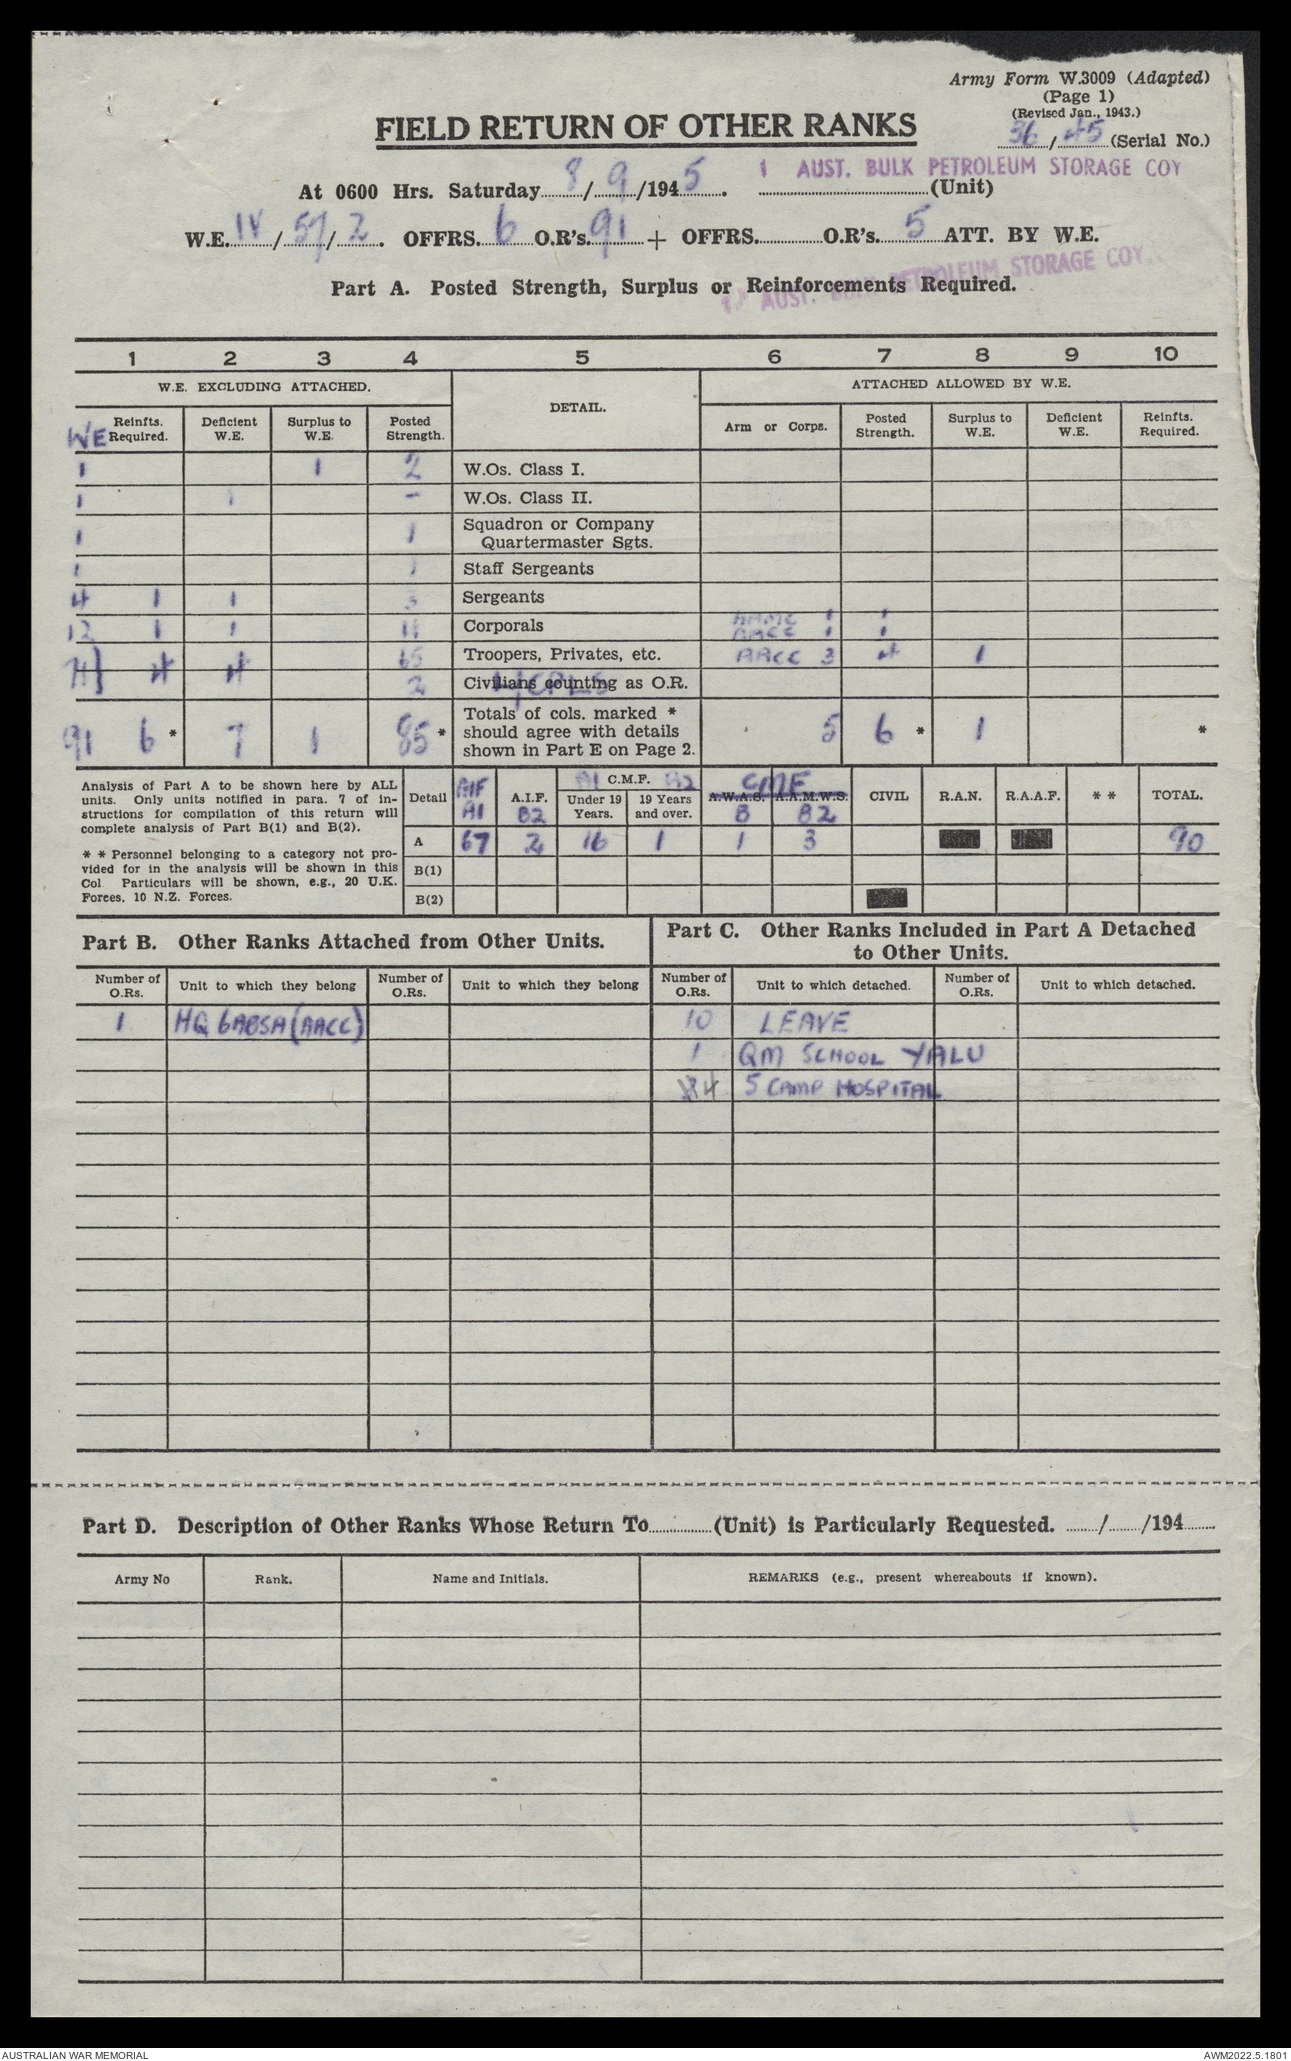 Army Form W.3009 (Adapted)
(Page 1)
(Revised Jan., 1943.)
36/45 (Serial No.)
FIELD RETURN OF OTHER RANKS
1 AUST. BULK PETROLEUM STORAGE COY
At 0600 Hrs. Saturday 8/9/1945. (Unit)
W.E. IV/57/2. OFFRS. 6 O.R's. 91 + OFFRS. O.R's. 5 ATT. BY W.E.
AUST. BULK PETROLEUM STORAGE COY.
Part A. Posted Strength, Surplus or Reinforcements Required.
1 2 3 4 5 6 7 8 9 10
W.E. EXCLUDING ATTACHED. DETAIL. ATTACHED ALLOWED BY W.E.
WE Reinfts. Required. Deficient W.E. Surplus to W.E. Posted Strength. Arm or Corps. Posted Strength. Surplus to W.E. Deficient W.E. Reinfts. Required.
1 1 2 W.Os. Class I.
1 1 - W.Os. Class II.
1 1 Squadron or Company Quartermaster Sgts.
1 1 Staff Sergeants
4 1 1 3 Sergeants
12 1 1 11 Corporals AAMC 1 1
AACC 1 1
71} 4 4 65 Troopers, Privates, etc. AACC 3 4 1
2 Civilians counting as O.R.
91 6 * 7 1 85 * Totals of cols. marked * should agree with details shown in Part E on Page 2. 5 6 * 1 *
Analysis of Part A to be shown here by ALL
units. Only units notified in para. 7 of in-
structions for compilation of this return will
complete analysis of Part B(1) and B(2).
* * Personnel belonging to a category not pro-
vided for in the analysis will be shown in this
Col Particulars will be shown, e.g., 20 U.K.
Forces, 10 N.Z. Forces.
Detail AIF A1 A.I.F. B2 A1 C.M.F. A2 Under 19 Years. 19 Years and over. CMF A.W.A.S. B A.A.M.W.S. B2 CIVIL R.A.N. R.A.A.F. * * TOTAL.
A 67 2 16 1 1 3 90
B(1)
B(2)
Part B. Other Ranks Attached from Other Units.
Part C. Other Ranks Included in Part A Detached
to Other Units.
Number of O.Rs. Unit to which they belong Number of O.Rs. Unit to which they belong Number of O.Rs. Unit to which detached. Number of O.Rs. Unit to which detached.
1 HQ 6ABSA (AACC) 10 LEAVE
1 QM SCHOOL YALU
4 5 CAMP HOSPITAL
Part D. Description of Other Ranks Whose Return To (Unit) is Particularly Requested. / /194
Army No Rank. Name and Initials. REMARKS (e.g., present whereabouts if known).
AUSTRALIAN WAR MEMORIAL AWM2022.5.1801